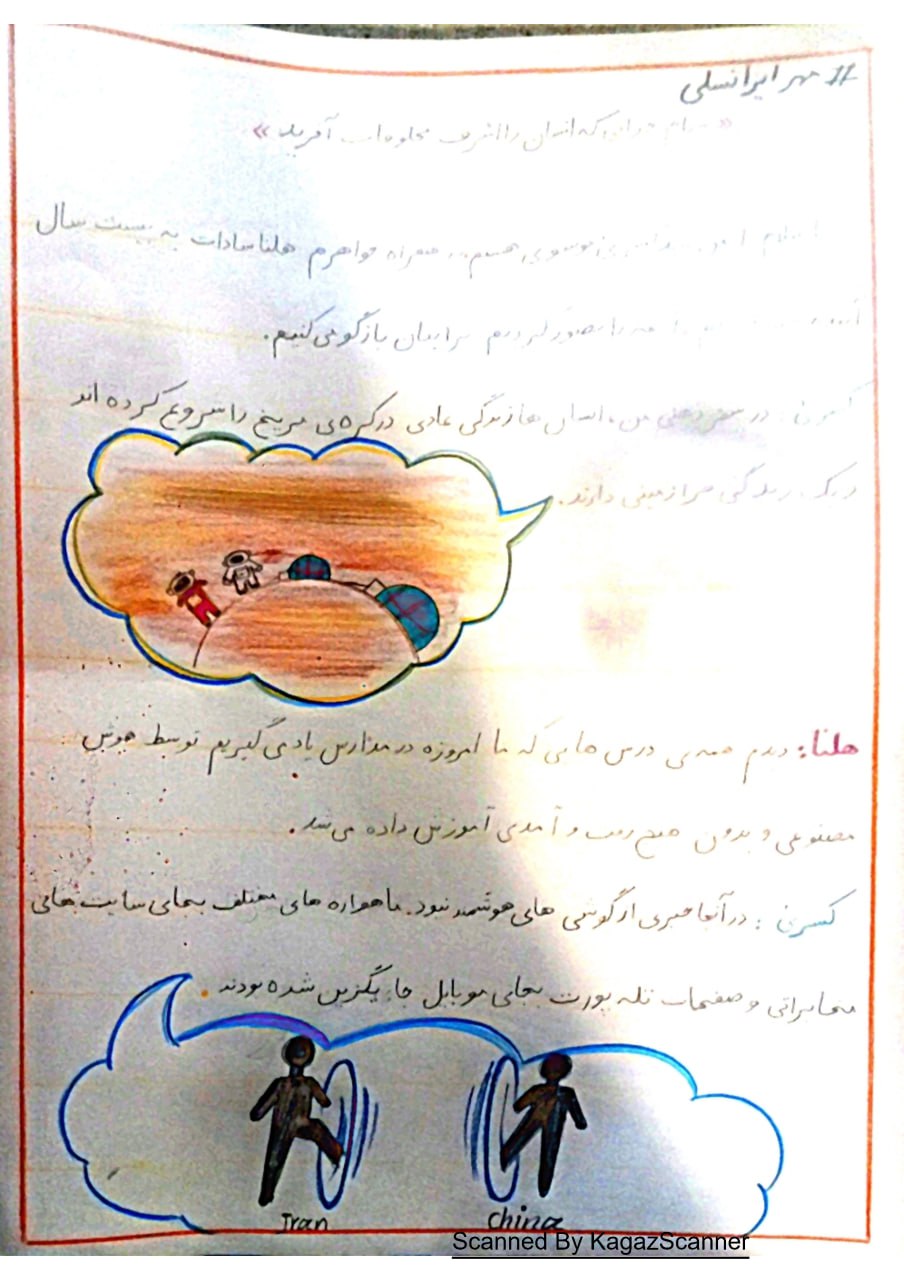 # مهر ایرانسلی
« خدای که انسان را اشرف مخلوقات آفرید »
سلام موسوی هستم، همراه خواهرم هلنا سادات به بیست سال
را تصور کردیم برایتان بازگو می‌کنیم.
در ذهنی من، انسان ها زندگی عادی در کره‌ی مریخ را شروع کرده اند
زندگی فرازمینی دارند.
هلنا: دیدم همه‌ی درس هایی که ما امروزه در مدارس یاد می گیریم توسط هوش
مصنوعی و بدون هیچ رفت و آمدی آموزش داده می‌شد.
کسری : در آنجا خبری از گوشی های هوشمند نبود. ماهواره های مختلف بجای سایت هایی
مخابراتی و صفحات تله پورت بجای موبایل جایگزین شده بودند.
Iran china
Scanned By KagazScanner